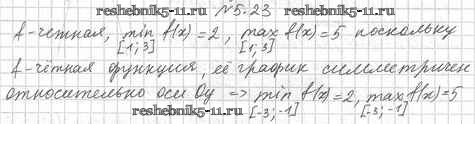 reshebnik5-11.ru №5.23 reshebnik5-11.ru
f-четная, min f(x)=2, max f(x)=5 поскольку
[1;3] [1;3]
f-чётная функция, её график симметричен
относительно оси Oy => min f(x)=2, max f(x)=5
reshebnik5-11.ru [-3;-1] [-3;-1]